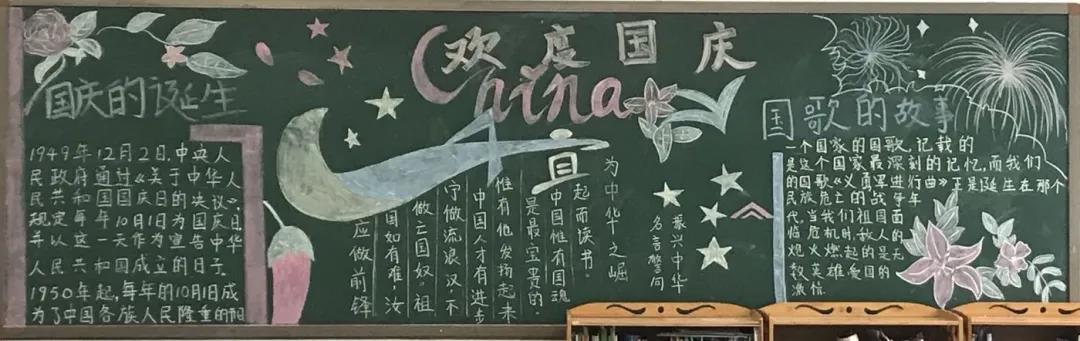 欢度国庆
China
国庆的诞生
1949年12月2日,中央人
民政府通过《关于中华人
民共和国国庆日的决议》,
规定每年10月1日为国庆日
并以这一天作为宣告中华
人民共和国成立的日子.
1950年起,每年的10月1日成
为了中国各族人民隆重的
振兴中华
名言警句
为中华之崛
起而读书。
中国惟有国魂
是最宝贵的.
惟有他发扬起来
中国人才有进步
宁做流浪汉不
做亡国奴。祖
国如有难,汝
应做前锋
国歌的故事
一个国家的国歌,记载的
是这个国家最深刻的记忆,而我们
的国歌《义勇军进行曲》正是诞生在那个
民族危亡的战争年
代.当我们祖国面
临危机时,敌人的
炮火燃起的是无
数英雄爱国的
激情.